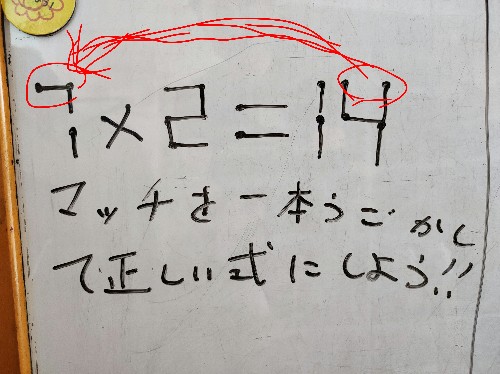 7×2=14
マッチを一本うごかし
て正しい式にしよう!!